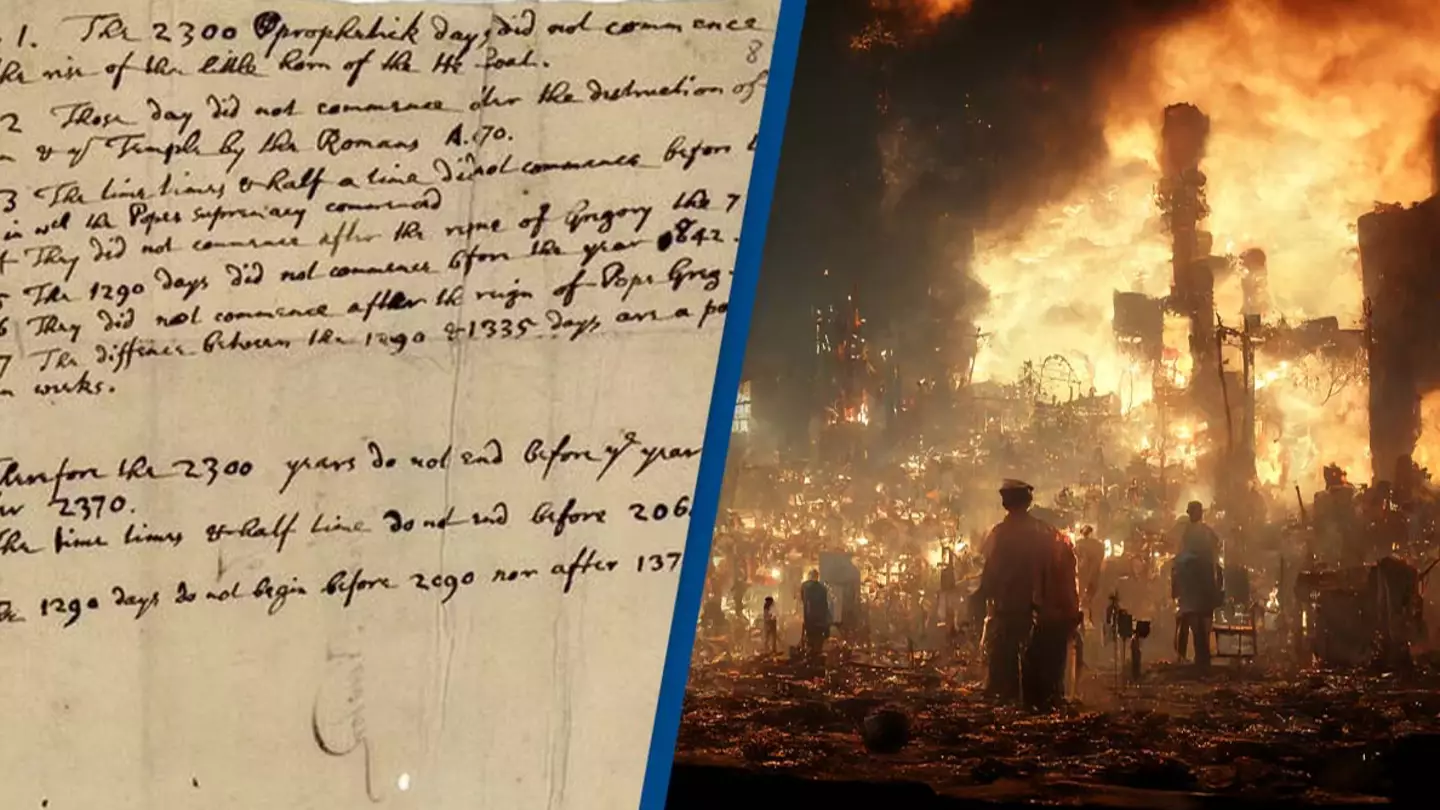 1. The 2300 prophetick days did not commence
the rise of the little horn of the He Goat.
8
2 Those day did not commence after the destruction of
& ye Temple by the Romans A. 70.
3 The time times & half a time did not commence before
in wch the Popes supremacy commenced
They did not commence after the reigne of Gregory the 7
The 1290 days did not commence before the year 842.
6 They did not commence after the reign of Pope Greg.
7 The diffence between the 1290 & 1335 days are a
weeks.
Therefore the 2300 years do not end before ye year
2370.
The time times & half time do not end before 206
1290 days do not begin before 2090 nor after 137